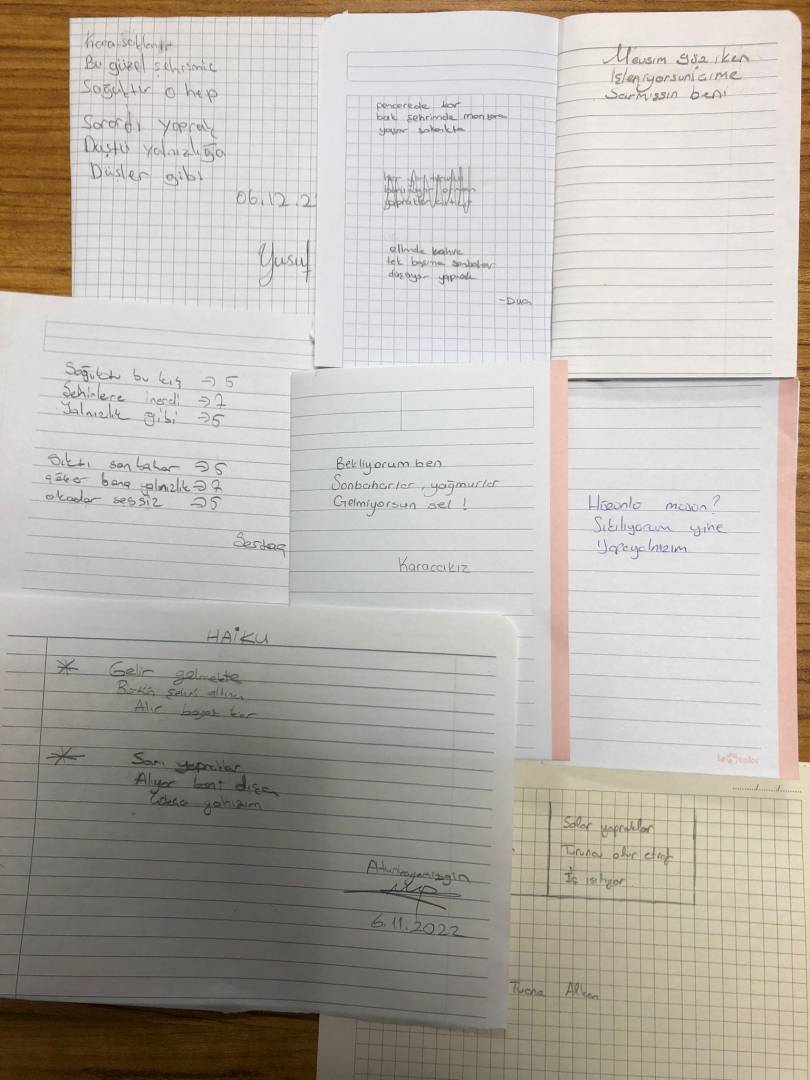 Kara saklanır
Bu güzel şehrimiz
Soğuktur o hep
Sarardı yaprak
Düştü yalnızlığa
Düşler gibi
06.12.2
Yusuf
pencerede kar
bak şehrimde manzara
yaşar sokakta
elimde kahve
tek başıma sonbahar
düşüyor yaprak
-Dua
Mevsim güz iken
İşleniyorsun içime
Sarmışsın beni
Soğuktu bu kış => 5
Şehirlere inerdi => 7
Yalnızlık gibi => 5
Sıktı sonbahar => 5
çöker bana yalnızlık => 7
okadar sessiz => 5
Bekliyorum ben
Sonbaharlar, yağmurlar
Gelmiyorsun sel!
Karacakız
Hüzünlü müsün?
Sıkılıyorum yine
Yapayalnızım
HAİKU
* Gelir gelmekte
Bütün şehir altını
Alır beyaz kar
* Sarı yapraklar
Alıyor beni dışarı
yalnızım
6.11.2022
Solar yapraklar
Turuncu olur etraf
İç ısıtıyor
Tuana Alkan